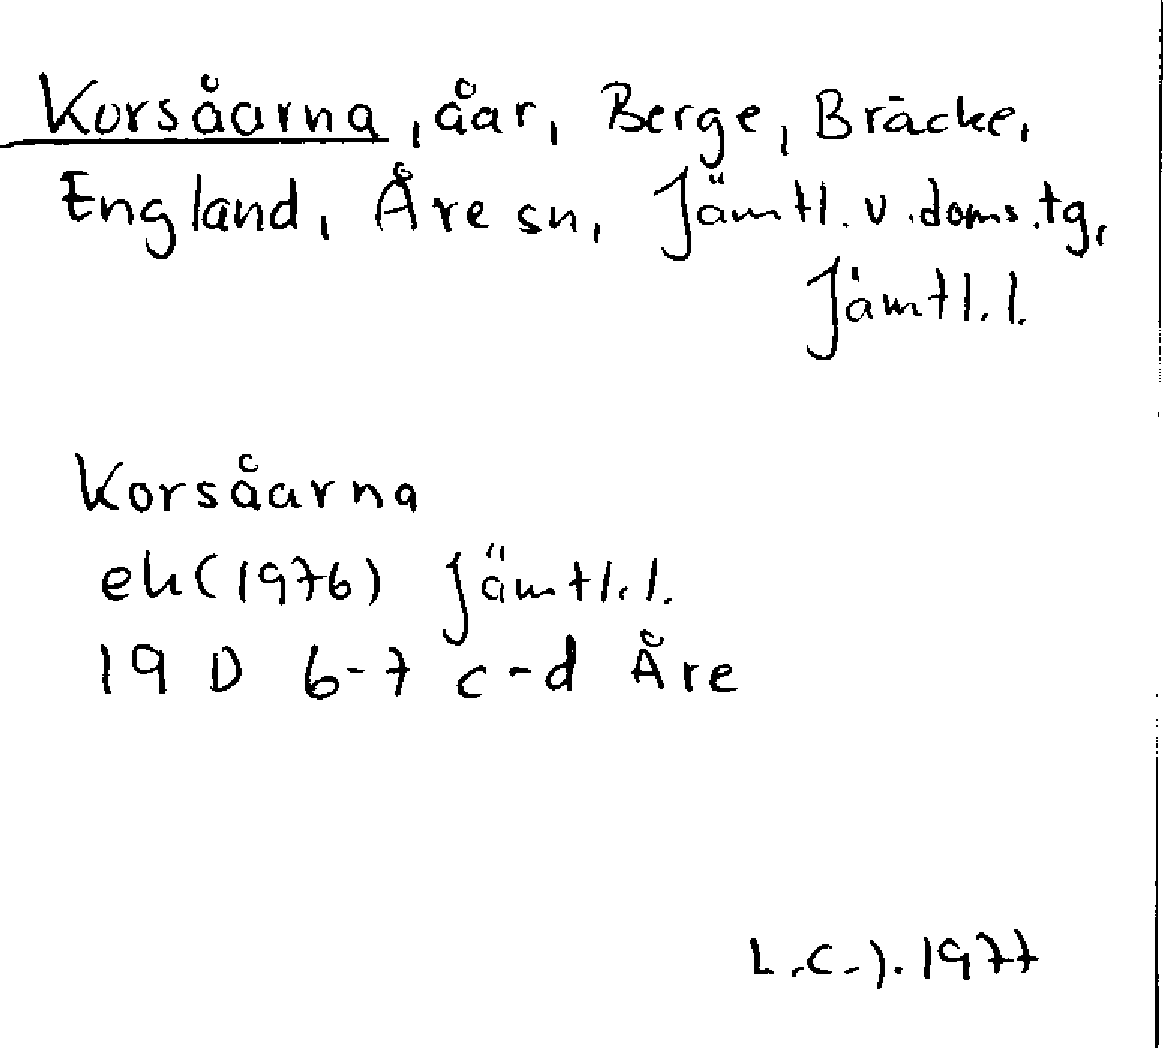 Korsåarna, åar, Berge, Bräcke,
England, Åre sn, Jämtl. v. doms. tg,
Jämtl. l.
Korsåarna
ek (1976) Jämtl. l.
19 D 6-7 c-d Åre
L.C.J. 1977